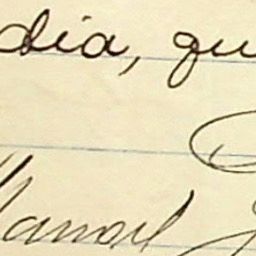 dia, qu
Manoel